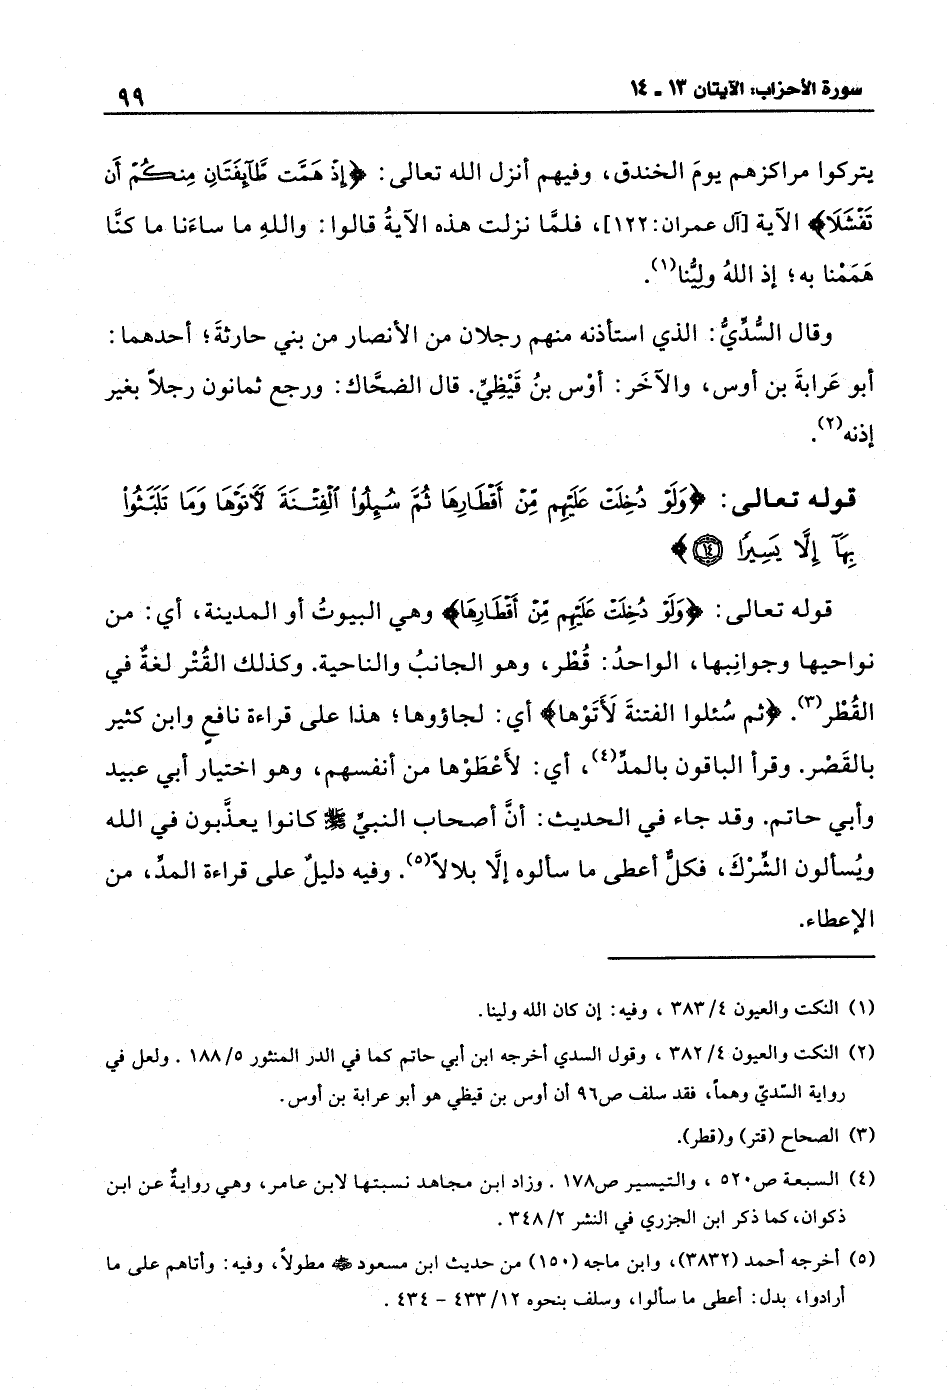 سورة الأحزاب: الآيتان ١٣ ـ ١٤
٩٩
يتركوا مراكزهم يومَ الخندق، وفيهم أنزل الله تعالى: ﴿إِذْ هَمَّت طَّآئِفَتَانِ مِنكُمْ أَن
تَفْشَلَا﴾ الآية [آل عمران:١٢٢]، فلمَّا نزلت هذه الآيةُ قالوا: واللهِ ما ساءَنا ما كنَّا
هَمَمْنا به؛ إذ اللهُ وليُّنا(١).
وقال السُّدِّيُّ: الذي استأذنه منهم رجلان من الأنصار من بني حارثةَ؛ أحدهما:
أبو عَرابةَ بن أوس، والآخَر: أوْس بنُ قَيْظِيِّ. قال الضحَّاك: ورجع ثمانون رجلاً بغير
إذنه(٢).
قوله تعالى: ﴿وَلَوْ دُخِلَتْ عَلَيْهِم مِّنْ أَقْطَارِهَا ثُمَّ سُئِلُواْ الْفِتْنَةَ لَآتَوْهَا وَمَا تَلَبَّثُواْ
بِهَآ إِلَّا يَسِيرًا ﴿١٤﴾﴾
قوله تعالى: ﴿وَلَوْ دُخِلَتْ عَلَيْهِم مِّنْ أَقْطَارِهَا﴾ وهي البيوتُ أو المدينة، أي: من
نواحيها وجوانِبها، الواحدُ: قُطْر، وهو الجانبُ والناحية. وكذلك القُتْر لغةٌ في
القُطْر(٣). ﴿ثم سُئلوا الفتنةَ لَأَتَوْها﴾ أي: لجاؤوها؛ هذا على قراءة نافعٍ وابن كثير
بالقَصْر. وقرأ الباقون بالمدِّ(٤)، أي: لأَعْطَوْها من أنفسهم، وهو اختيار أبي عبيد
وأبي حاتم. وقد جاء في الحديث: أنَّ أصحاب النبيِّ ﷺ كانوا يعذَّبون في الله
ويُسألون الشِّرْكَ، فكلٌّ أعطى ما سألوه إلَّا بلالاً(٥). وفيه دليلٌ على قراءة المدِّ، من
الإعطاء.
(١) النكت والعيون ٣٨٣/٤ ، وفيه: إن كان الله ولينا.
(٢) النكت والعيون ٣٨٢/٤ ، وقول السدي أخرجه ابن أبي حاتم كما في الدر المنثور ١٨٨/٥ . ولعل في
رواية السّديّ وهماً، فقد سلف ص٩٦ أن أوس بن قيظي هو أبو عرابة بن أوس.
(٣) الصحاح (قتر) و(قطر).
(٤) السبعة ص٥٢٠ ، والتيسير ص١٧٨ . وزاد ابن مجاهد نسبتها لابن عامر، وهي روايةٌ عن ابن
ذكوان، كما ذكر ابن الجزري في النشر ٣٤٨/٢ .
(٥) أخرجه أحمد (٣٨٣٢)، وابن ماجه (١٥٠) من حديث ابن مسعود ﷺ مطولاً، وفيه: وأتاهم على ما
أرادوا، بدل: أعطى ما سألوا، وسلف بنحوه ٤٣٣/١٢ - ٤٣٤ .